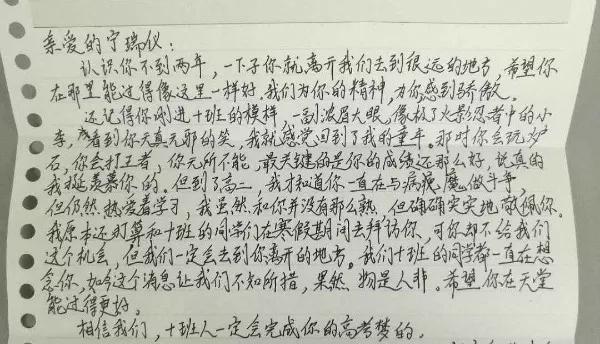 亲爱的宁瑞仪：
认识你不到两年，一下子你就离开我们去到很远的地方，希望你
在那里能过得像这里一样好，我们为你的精神，为你感到骄傲。
还记得你刚进十班的模样，一副浓眉大眼，像极了火影忍者中的小
李，看到你天真无邪的笑，我就感觉回到了我的童年。那时你会玩炉
石，你会打王者，你无所不能，最关键的是你的成绩还那么好，说真的
我挺羡慕你的。但到了高二，我才知道你一直在与病魔做斗争，
但仍然热爱着学习，我虽然和你并没有那么熟，但确确实实地敬佩你。
我原本还打算和十班的同学们在寒假期间去拜访你，可你却不给我们
这个机会，但我们一定会去到你离开的地方。我们十班的同学都一直在想
念你，如今这个消息让我们不知所措，果然，物是人非。希望你在天堂
能过得更好。
相信我们，十班人一定会完成你的高考梦的。